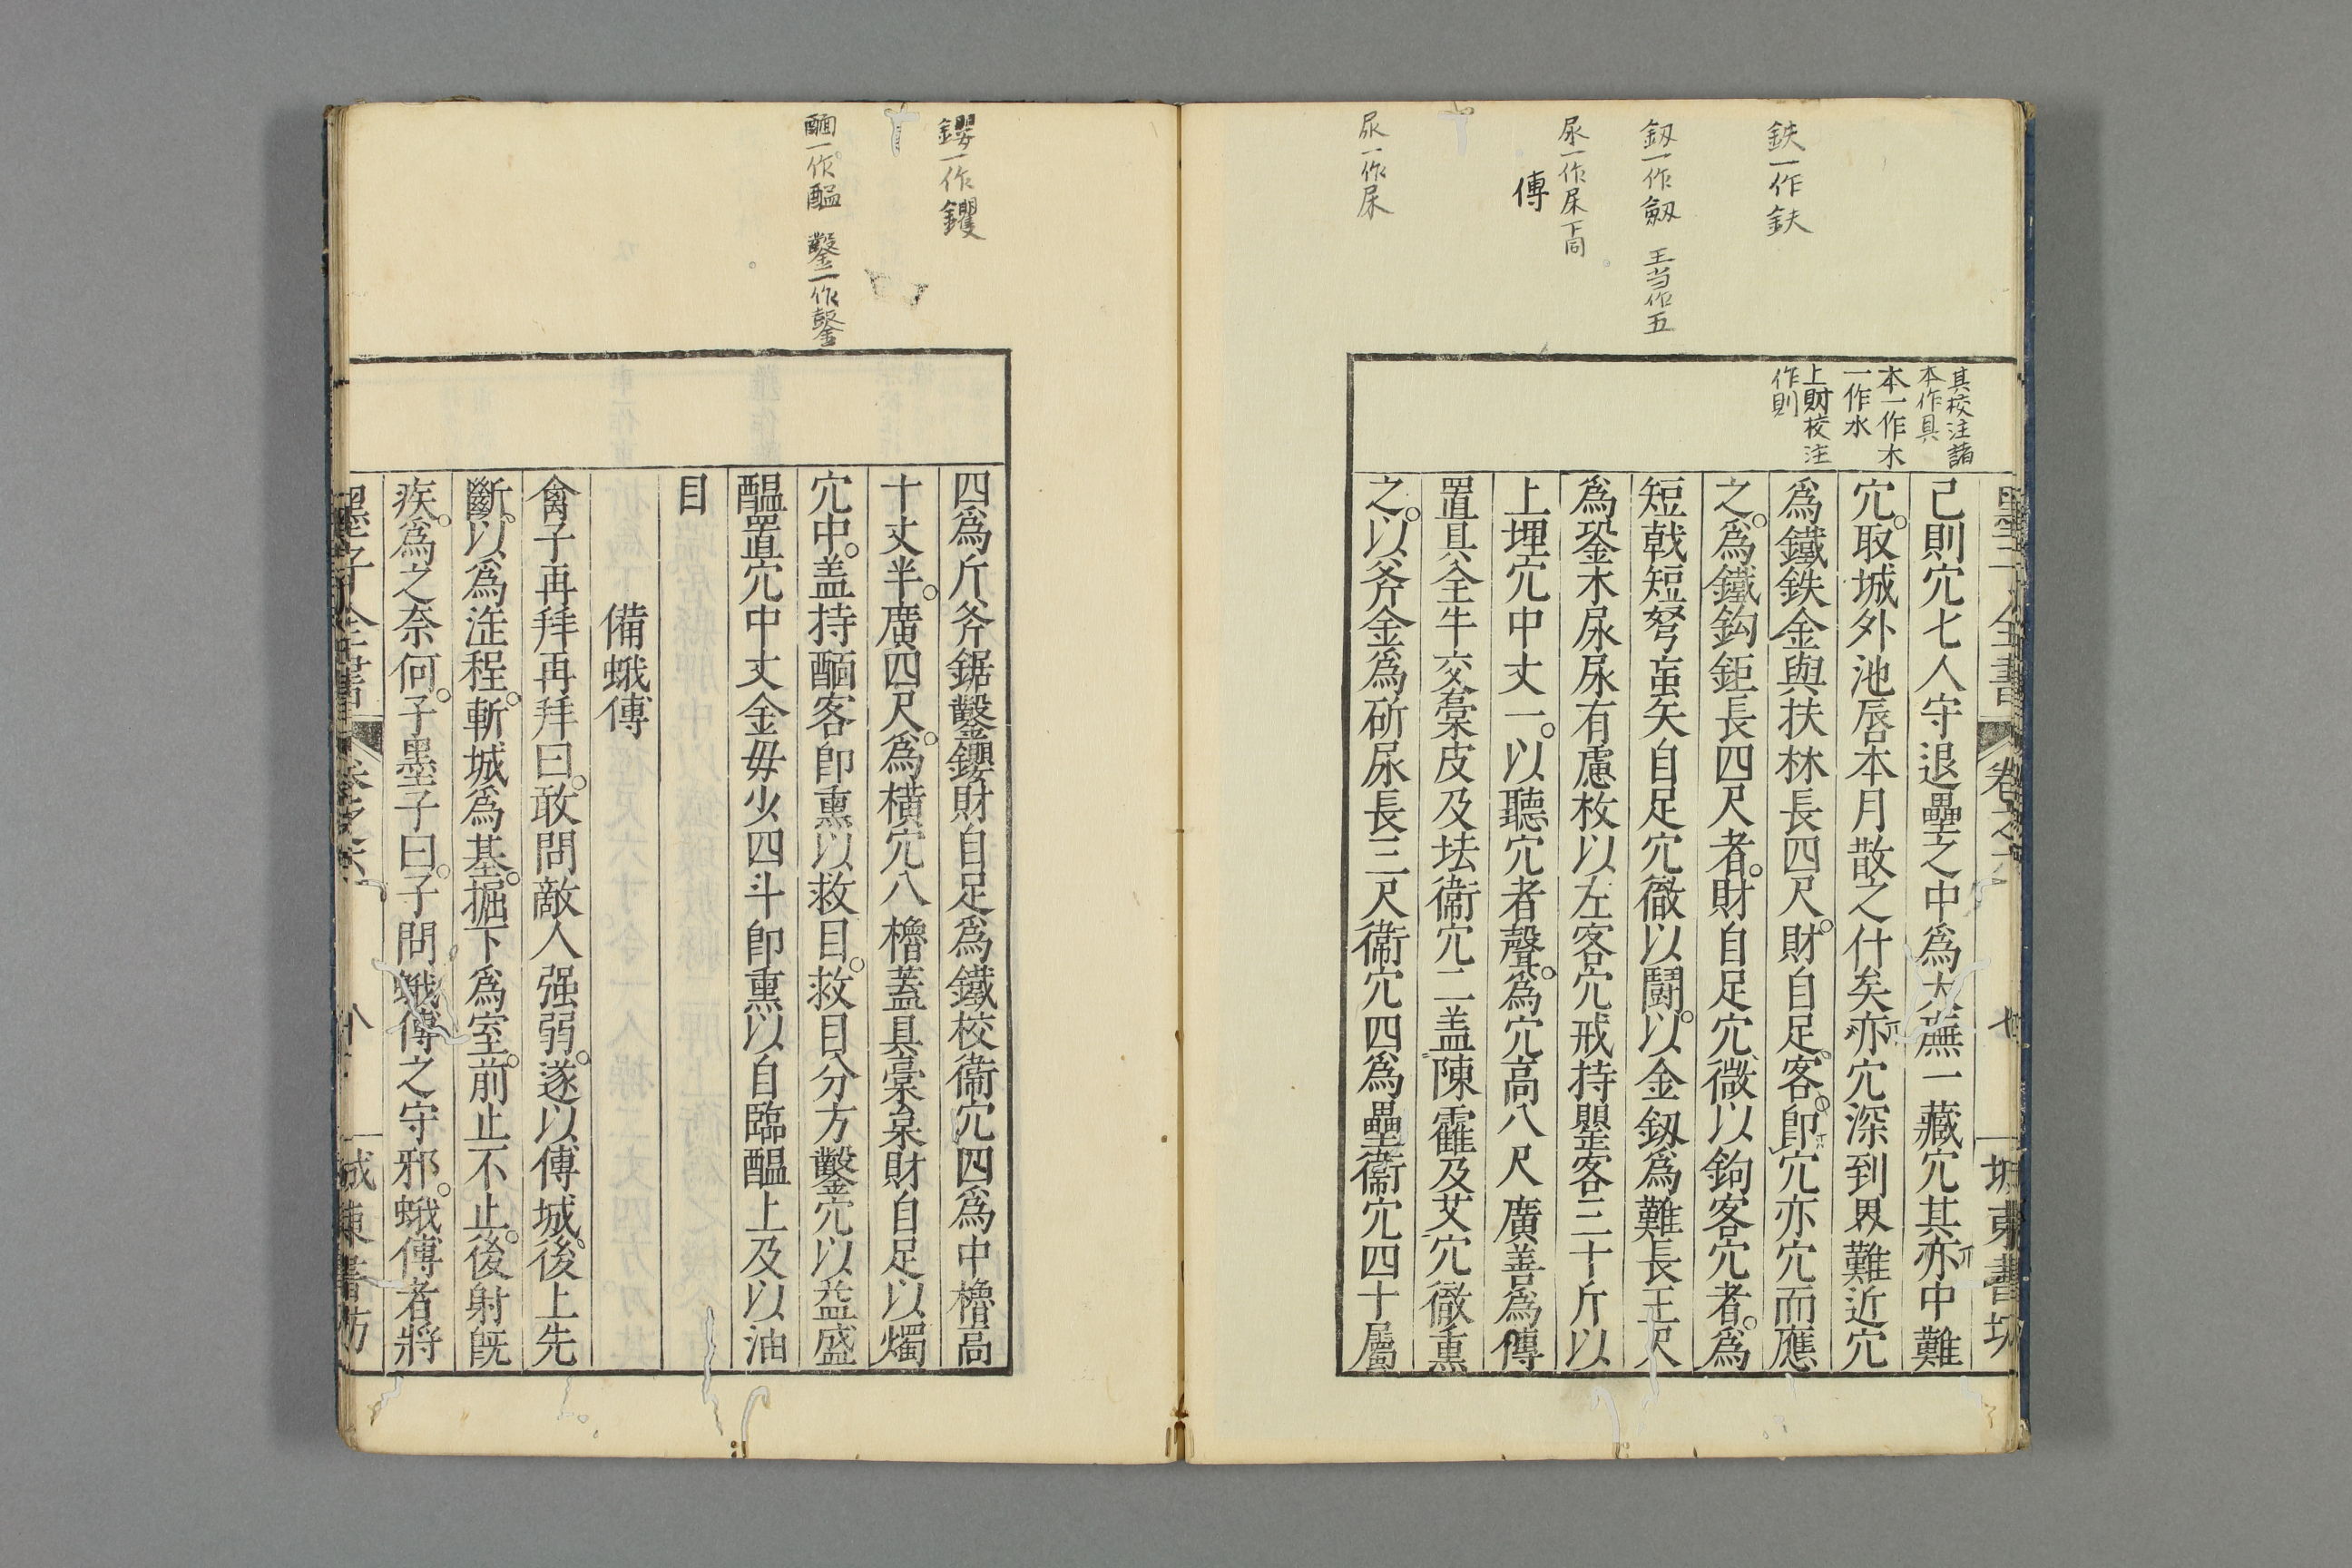 鉄一作鈇
釼一作劔　王当作五
尿一作㞋下同
傅
尿一作㞋
其校注諸
本作具
本一作木
一作水
上財校注
作則
墨子全書　卷之六　七　城東書坊
己則穴七人守退壘之中爲大廡一藏穴其亦中難
穴。取城外池唇本月散之什矣亦穴深到界難近穴
爲鐵鉄金與扶林長四尺。財自足。客。卽穴亦穴而應
之。爲鐵鈎鉅長四尺者。財自足穴徹以鉤客穴者。爲
短戟短弩䖟矢自足穴徹以鬬。以金釼爲難長王尺
爲銎木尿尿有慮枚以左客穴戒持罌客三十斤以
上埋穴中丈一。以聽穴者聲。爲穴高八尺廣善爲傅
置具全牛交槀皮及㘫衞穴二盖陳霾及艾穴徹熏
之。以斧金爲斫尿長三尺衞穴四爲壘衞穴四十屬
鑍一作钁
䤄一作醖　鑿一作鋻
四爲斤斧鋸鑿鑍財自足爲鐵校衞穴四爲中櫓高
十丈半。廣四尺。爲橫穴八櫓蓋具槀枲財自足以燭
穴中。盖持䤄客卽熏以救目。救目分方鑿穴以益盛
醖置穴中丈金毋少四斗卽熏以自臨醖上及以油
目
備蛾傅
禽子再拜再拜曰。敢問敵人强弱。遂以傅城。後上先
斷。以爲浝程。斬城爲基。掘下爲室。前止不止。後射旣
疾。爲之奈何。子墨子曰。子問蛾傅之守邪。蛾傅者將
墨子全書　卷之六　城東書坊